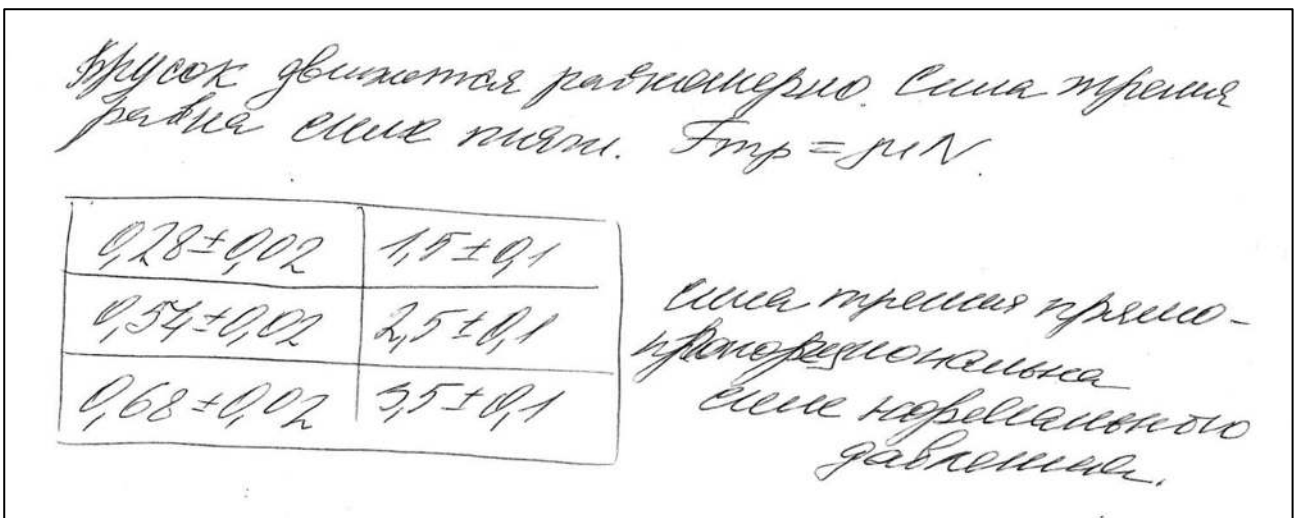 Брусок движется равномерно. Сила трения
равна силе тяги. Fтр = μN.
0,28±0,02 1,5±0,1
0,54±0,02 2,5±0,1
0,68±0,02 3,5±0,1
сила трения прямо-
пропорциональна
силе нормального
давления.